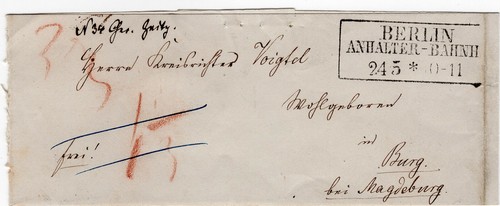 N 34 Ger. Zeitg.
BERLIN
ANHALTER-BAHNH
24 5 * 10-11
Herrn Kreisrichter Voigtel
Wohlgeboren
frei!
in
Burg.
bei Magdeburg.